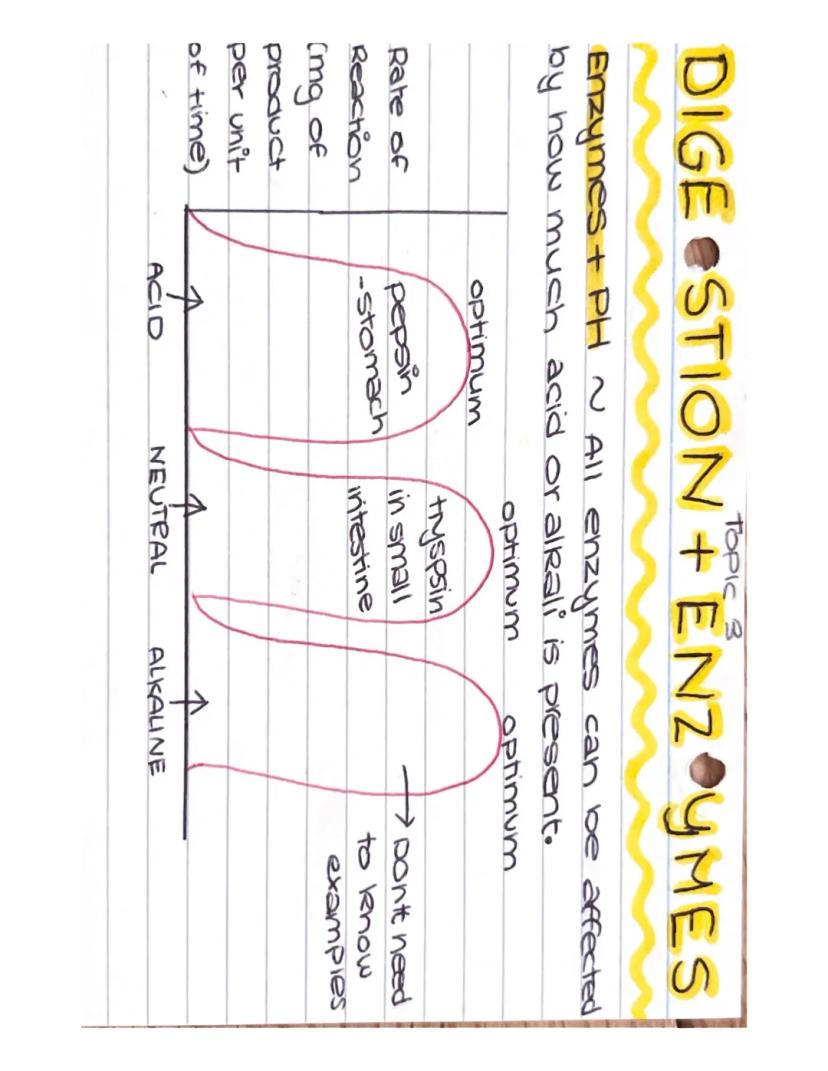 Topic 3
DIGE STION + ENZ YMES
Enzymes + PH ~ All enzymes can be affected
by how much acid or alkali is present.
Rate of
Reaction
(mg of
product
per unit
of time)
optimum
pepsin
-stomach
optimum
tryspsin
in small
intestine
optimum
→ Don't need
to know
examples
ACID
NEUTRAL
ALKALINE